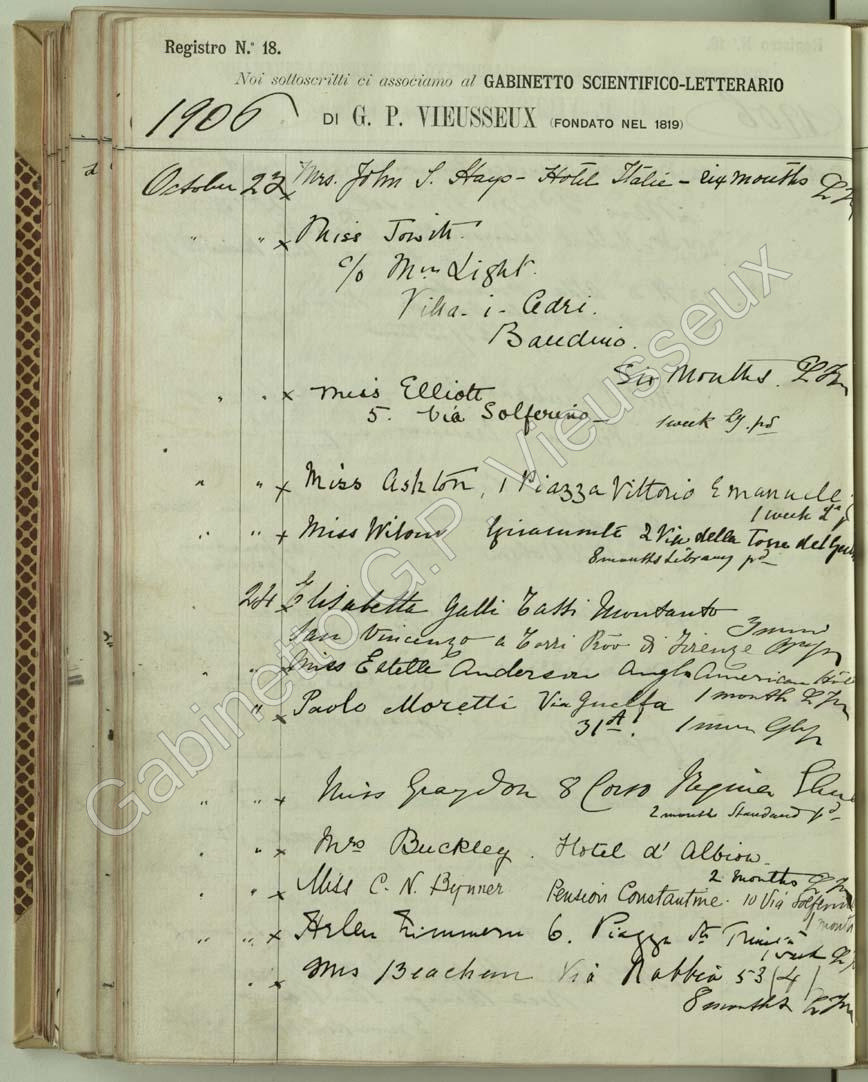 Registro N.º 18.
Noi sottoscritti ci associamo al GABINETTO SCIENTIFICO-LETTERARIO
1906 DI G. P. VIEUSSEUX (FONDATO NEL 1819)
October 23 x Mrs. John S. Hays - Hotel Italie - six months
" " x Miss Jowitt
c/o Mrs Light.
Villa - i - Cedri.
Bandino.
Six Months.
" " x Miss Elliott
5. Via Solferino - 1 week pd
" " x Miss Ashton, 1 Piazza Vittorio Emanuele
1 week
" " x Miss Wilson 2 Via della Torre del
8 months Library pd
24 x Elisabetta Galli Tassi Montauto
San Vincenzo a Torri Prov di Firenze
" " x Miss Estelle Anderson Anglo American
1 month
" x Paolo Moretti Via Guelfa
31A. 1 mese
" " x Miss Graydon 8 Corso Regina
2 month Standard pd
" " x Mrs Buckley. Hotel d'Albion
2 months
" " x Miss C. N. Bynner Pension Constantine. 10 Via
1 month
" " x Helen Zimmern 6. Piazza Sta Trinità
1 week
" x Mrs Beacham Via Robbia 53 /4/
8 months
Gabinetto G.P. Vieusseux